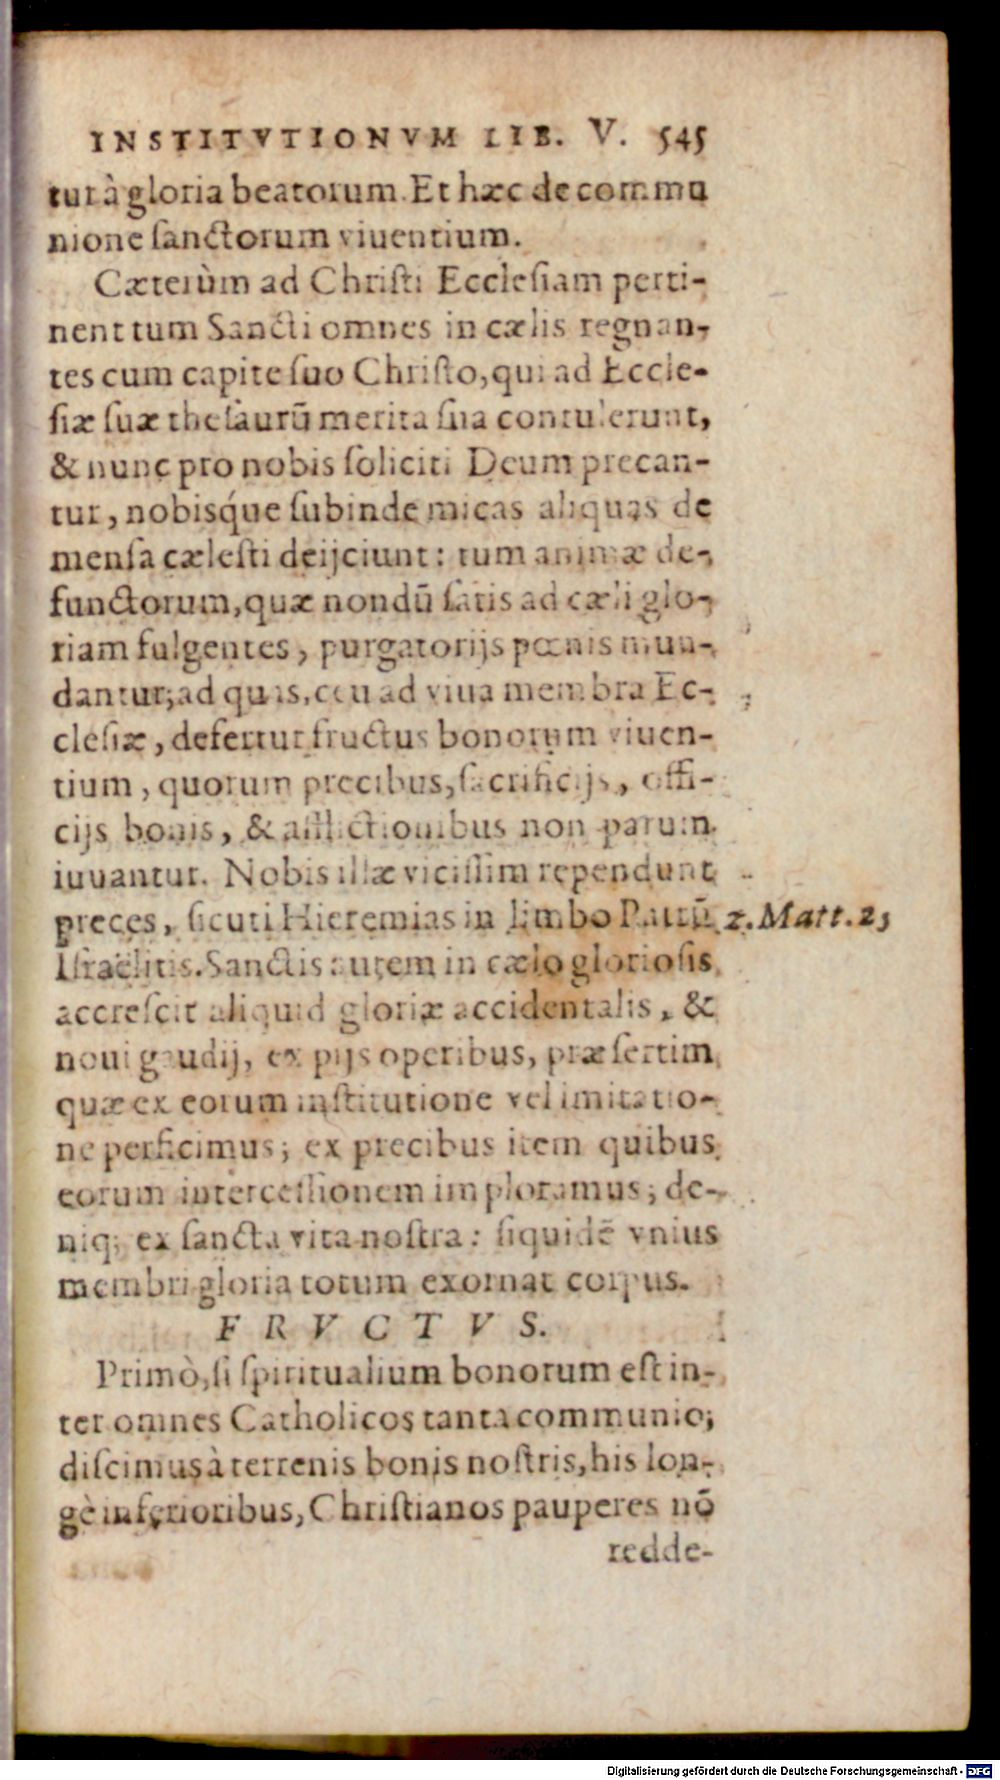 INSTITVTIONVM LIB. V. 545
tur à gloria beatorum. Et hæc de commu
nione ſanctorum viuentium.
Cæterùm ad Chriſti Eccleſiam perti-
nent tum Sancti omnes in cælis regnan-
tes cum capite ſuo Chriſto, qui ad Eccle-
ſiæ ſuæ theſaurũ merita ſua contulerunt,
& nunc pro nobis ſoliciti Deum precan-
tur, nobisq́ue ſubinde micas aliquas de
menſa cæleſti deijciunt: tum animæ de-
functorum, quæ nondũ ſatis ad cæli glo-
riam fulgentes, purgatorijs pœnis mun-
dantur; ad quas, ceu ad viua membra Ec-
cleſiæ, defertur fructus bonorum viuen-
tium, quorum precibus, ſacrificijs, offi-
cijs bonis, & afflictionibus non parum
iuuantur. Nobis illæ viciſſim rependunt
preces, ſicuti Hieremias in limbo Patrũ 2. Matt. 25
Iſraëlitis. Sanctis autem in cælo glorioſis
accreſcit aliquid gloriæ accidentalis, &
noui gaudij, ex pijs operibus, præſertim
quæ ex eorum inſtitutione vel imitatio-
ne perficimus; ex precibus item quibus
eorum interceſſionem imploramus; de-
niq; ex ſancta vita noſtra: ſiquidẽ vnius
membri gloria totum exornat corpus.
FRVCTVS.
Primò, ſi ſpiritualium bonorum eſt in-
ter omnes Catholicos tanta communio;
diſcimus à terrenis bonis noſtris, his lon-
gè inferioribus, Chriſtianos pauperes nõ
redde-
Digitalisierung gefördert durch die Deutsche Forschungsgemeinschaft - DFG